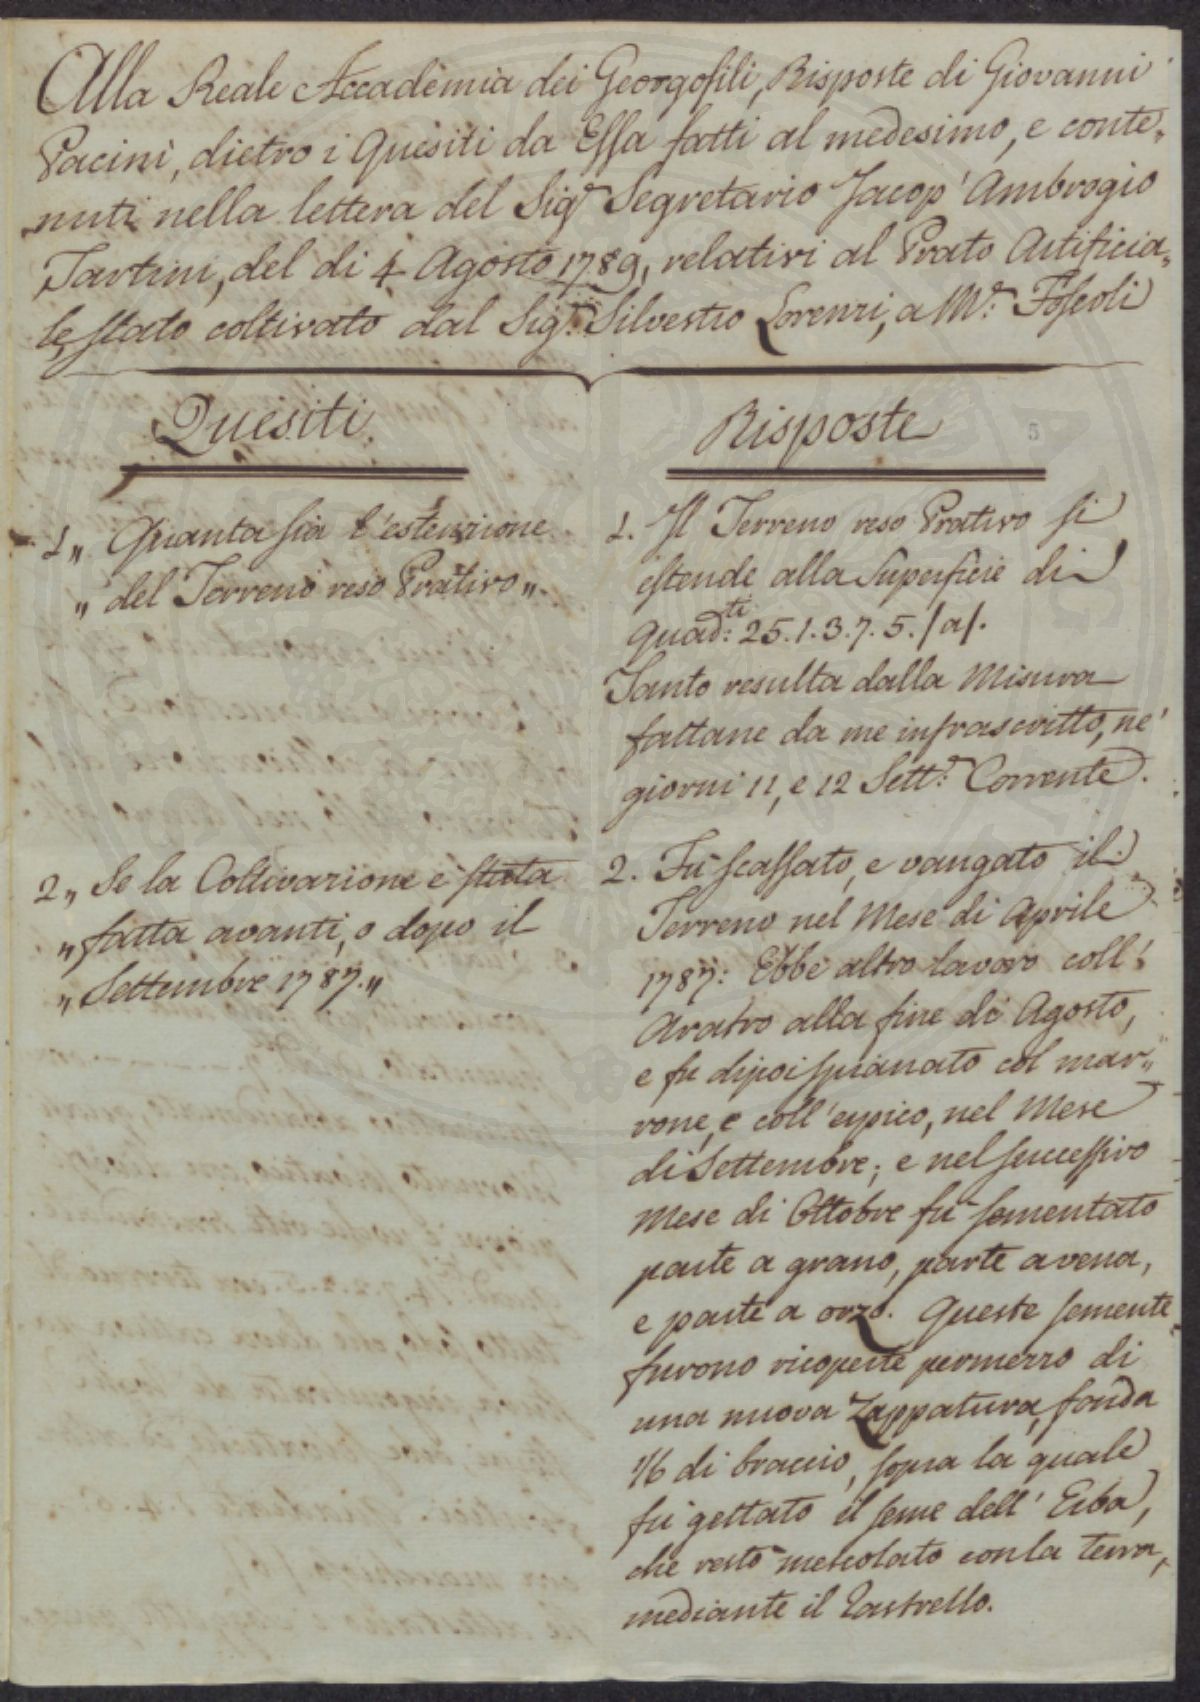 Alla Reale Accademia dei Georgofili, Risposte di Giovanni
Pacini, dietro i Quesiti da Essa fatti al medesimo, e conte,
nuti nella lettera del Sigr. Segretario Jacop' Ambrogio
Tartini, del di 4 Agosto 1789, relativi al Prato Artificia,
le stato coltivato dal Sigr. Silvestro Lorenzi, a Mr. Foscoli
Quesiti.
Risposte
5
1,, Quanta sia l'estensione
,, del Terreno reso Prativo,,.
1. Il Terreno reso Prativo si
estende alla Superficie di
Quad:ti 25.1.3.7.5. /a/.
Tanto resulta dalla Misura
fattane da me infrascritto, ne'
giorni 11, e 12 Sett:e Corrente.
2,, Se la Coltivazione è stata
,, fatta avanti, o dopo il
,, Settembre 1787.,,
2. Fù scassato, e vangato il
Terreno nel Mese di Aprile
1787: Ebbe altro lavoro coll'
Aratro alla fine di Agosto,
e fu dipoi spianato col mar,,
rone, e coll'erpico, nel Mese
di Settembre; e nel successivo
Mese di Ottobre fù sementato
parte a grano, parte a vena,
e parte a orzo. Queste semente
furono ricoperte permezzo di
una nuova Zappatura, fonda
1/6 di braccio, sopra la quale
fù gettato il seme dell' Erba,
che restò mescolato con la terra,
mediante il Rastrello.